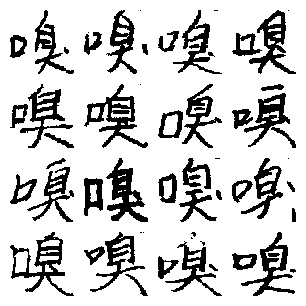 嗅嗅嗅嗅
嗅嗅嗅嗅
嗅嗅嗅嗅
嗅嗅嗅嗅